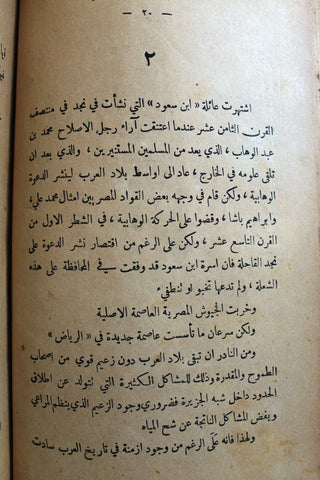 — ٢٠ —
٢
اشتهرت عائلة «ابن سعود» التي نشأت في نجد في منتصف
القرن الثامن عشر عندما اعتنقت آراء رجل الاصلاح محمد بن
عبد الوهاب ، الذي يعد من المسلمين المستنيرين ، والذي بعد ان
تلقى علومه في الخارج ، عاد الى اواسط بلاد العرب لينشر الدعوة
الوهابية ، ولكن قام في وجهه بعض القواد المصريين امثال محمد علي ،
وابراهيم باشا ، وقضوا على الحركة الوهابية ، في الشطر الاول من
القرن التاسع عشر ، ولكن على الرغم من اقتصار نشر الدعوة على
نجد القاحلة فان اسرة ابن سعود قد وفقت في المحافظة على هذه
الشعلة ، ولم تدعها تخبو او تنطفيء
وخربت الجيوش المصرية العاصمة الاصلية
ولكن سرعان ما تأسست عاصمة جديدة في «الرياض»
ومن النادر ان تبقى بلاد العرب دون زعيم قوي من اصحاب
الطموح والمقدرة وذلك للمشاكل الكثيرة التي تتولد عن اطلاق
الحدود داخل شبه الجزيرة فضروري وجود الزعيم الذي ينظم المراعي
ويفض المشاكل الناتجة عن شح المياه
ولهذا فانه على الرغم من وجود ازمنة في تاريخ العرب سادت